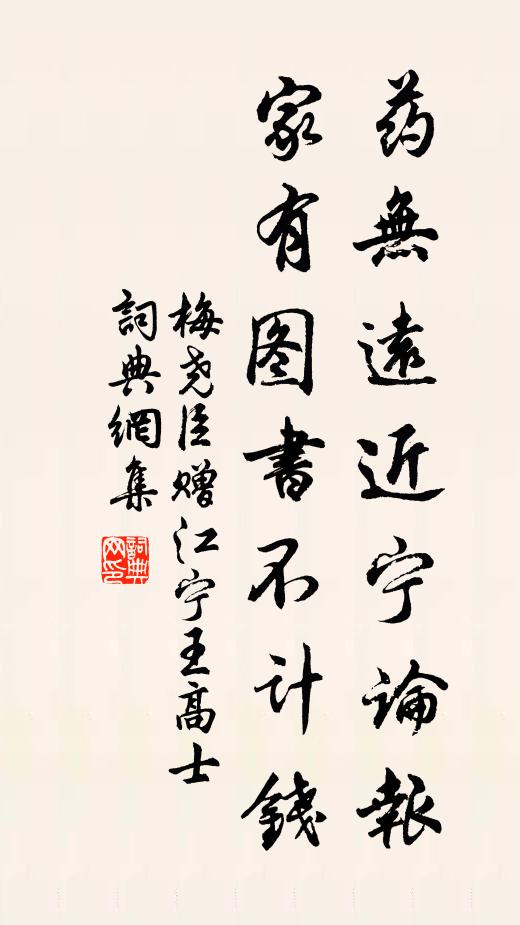 药無遠近宁論報
家有图書不计錢
梅尧臣赠江宁王高士
詞典網集
詞典网印